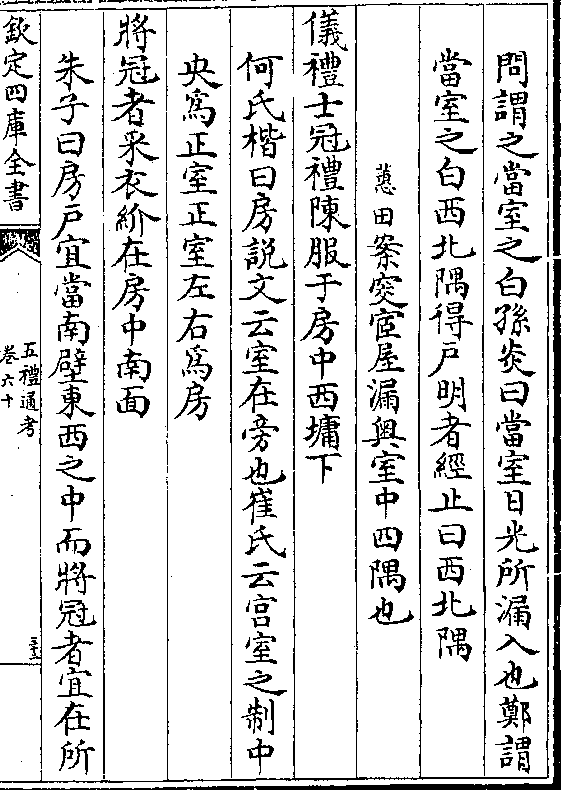 問謂之當室之白孫炎曰當室日光所漏入也鄭謂
當室之白西北隅得戶明者經止曰西北隅
蕙田案窔宧屋漏奥室中四隅也
儀禮士冠禮陳服于房中西墉下
何氏楷曰房説文云室在旁也崔氏云宫室之制中
央爲正室正室左右爲房
將冠者采衣紒在房中南面
朱子曰房戶宜當南壁東西之中而將冠者宜在所
欽定四庫全書
五禮通考
卷六十